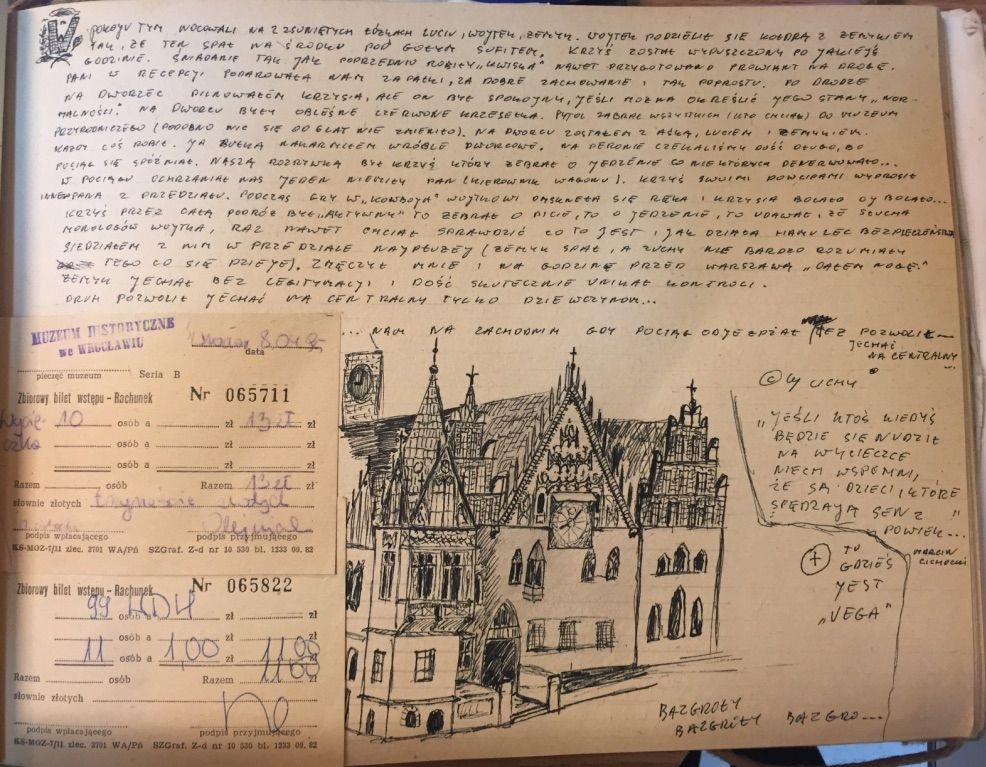 W POKOJU TYM NOCOWALI NA 2 ZSUNIĘTYCH ŁÓŻKACH LUCIU, WOJTEK, ZEMYK. WOJTEK PODZIELIŁ SIĘ KOŁDRĄ Z ZEMYKIEM
TAK, ŻE TEN SPAŁ NA ŚRODKU POD GOŁYM SUFITEM. KRZYŚ ZOSTAŁ WYPUSZCZONY PO JAKIEJŚ
GODZINIE. ŚNIADANIE TAK JAK POPRZEDNIO ROBIŁY „KWIŚKA” NAWET PRZYGOTOWANO PROWIANT NA DROGĘ.
PANI W RECEPCJI PODAROWAŁA NAM ZAPAŁKI, ZA DOBRE ZACHOWANIE I TAK POPROSTU. PO DRODZE
NA DWORZEC PILNOWAŁEM KRZYSIA, ALE ON BYŁ SPOKOJNY, JEŚLI MOŻNA OKREŚLIĆ JEGO STANY „NOR-
MALNOŚCI”. NA DWORCU BYŁY OBLEŚNE CZERWONE KRZESEŁKA. PYTOL ZABRAŁ WSZYSTKICH (KTO CHCIAŁ) DO MUZEUM
PRZYRODNICZEGO (PODOBNO NIC SIĘ OD 6 LAT NIE ZMIENIŁO). NA DWORCU ZOSTAŁEM Z ALKĄ, LUCIEM I ZEMYKIEM.
KAŻDY COŚ ROBIŁ. JA BUŁKĄ NAKARMIŁEM WRÓBLE DWORCOWE. NA PERONIE CZEKALIŚMY DOŚĆ DŁUGO, BO
POCIĄG SIĘ SPÓŹNIAŁ. NASZĄ ROZRYWKĄ BYŁ KRZYŚ KTÓRY ŻEBRAŁ O JEDZENIE CO NIEKTÓRYCH DENERWOWAŁO...
W POCIĄGU OCHRZANIAŁ NAS JEDEN NIEMIŁY PAN (KIEROWNIK WAGONU). KRZYŚ SWOIMI DOWCIPAMI WYPROSIŁ
INNEGO PANA Z PRZEDZIAŁU. PODCZAS GRY W „KOWBOJA” WOJTKOWI OMSKNĘŁA SIĘ RĘKA I KRZYSIA BOLAŁO OJ BOLAŁO...
KRZYŚ PRZEZ CAŁĄ PODRÓŻ BYŁ „AKTYWNY” TO ŻEBRAŁ O PICIE, TO O JEDZENIE, TO UDAWAŁ, ŻE SŁUCHA
MONOLOGÓW WOJTKA, RAZ NAWET CHCIAŁ SPRAWDZIĆ CO TO JEST I JAK DZIAŁA HAMULEC BEZPIECZEŃSTWA
SIEDZIAŁEM Z NIM W PRZEDZIALE NAJDŁUŻEJ (ZEMYK SPAŁ, A ZUCHY NIE BARDZO ROZUMIAŁY
TEGO CO SIĘ DZIEJE). ZMĘCZYŁ MNIE I NA GODZINĘ PRZED WARSZAWĄ „DAŁEM NOGĘ.”
ZEMYK JECHAŁ BEZ LEGITYMACJI I DOŚĆ SKUTECZNIE UNIKAŁ KONTROLI.
DRUH POZWOLIŁ JECHAĆ NA CENTRALNY TYLKO DZIEWCZYNOM...
... NAM NA ZACHODNIM GDY POCIĄG ODJEŻDŻAŁ TEŻ POZWOLIŁ
JECHAĆ
NA CENTRALNY
© BY CICHY
„JEŚLI KTOŚ KIEDYŚ
BĘDZIE SIĘ NUDZIŁ
NA WYCIECZCE
NIECH WSPOMNI,
ŻE SĄ DZIECI, KTÓRE
SPĘDZAJĄ SEN Z
POWIEK...”
MARCIN
CICHOCKI
TU
GDZIEŚ
JEST
„VEGA”
BAZGROŁY
BAZGROŁY BAZGRO...
MUZEUM HISTORYCZNE
we WROCŁAWIU
data
pieczęć muzeum Seria B
Zbiorowy bilet wstępu - Rachunek Nr 065711
10 osób a zł 13 zł
osób a zł zł
osób a zł zł
Razem osób Razem 13 zł
słownie złotych
podpis wpłacającego podpis przyjmującego
KS-MOZ-7/11 zlec. 2701 WA/Pń SZGraf. Z-d nr 10 530 bl. 1233 09. 82
Zbiorowy bilet wstępu - Rachunek Nr 065822
99 WDH
osób a zł zł
11 osób a 1,00 zł 11 00
Razem osób Razem 11 00 zł
słownie złotych
podpis wpłacającego podpis przyjmującego
KS-MOZ-7/11 zlec. 2701 WA/Pń SZGraf. Z-d nr 10 530 bl. 1233 09. 82